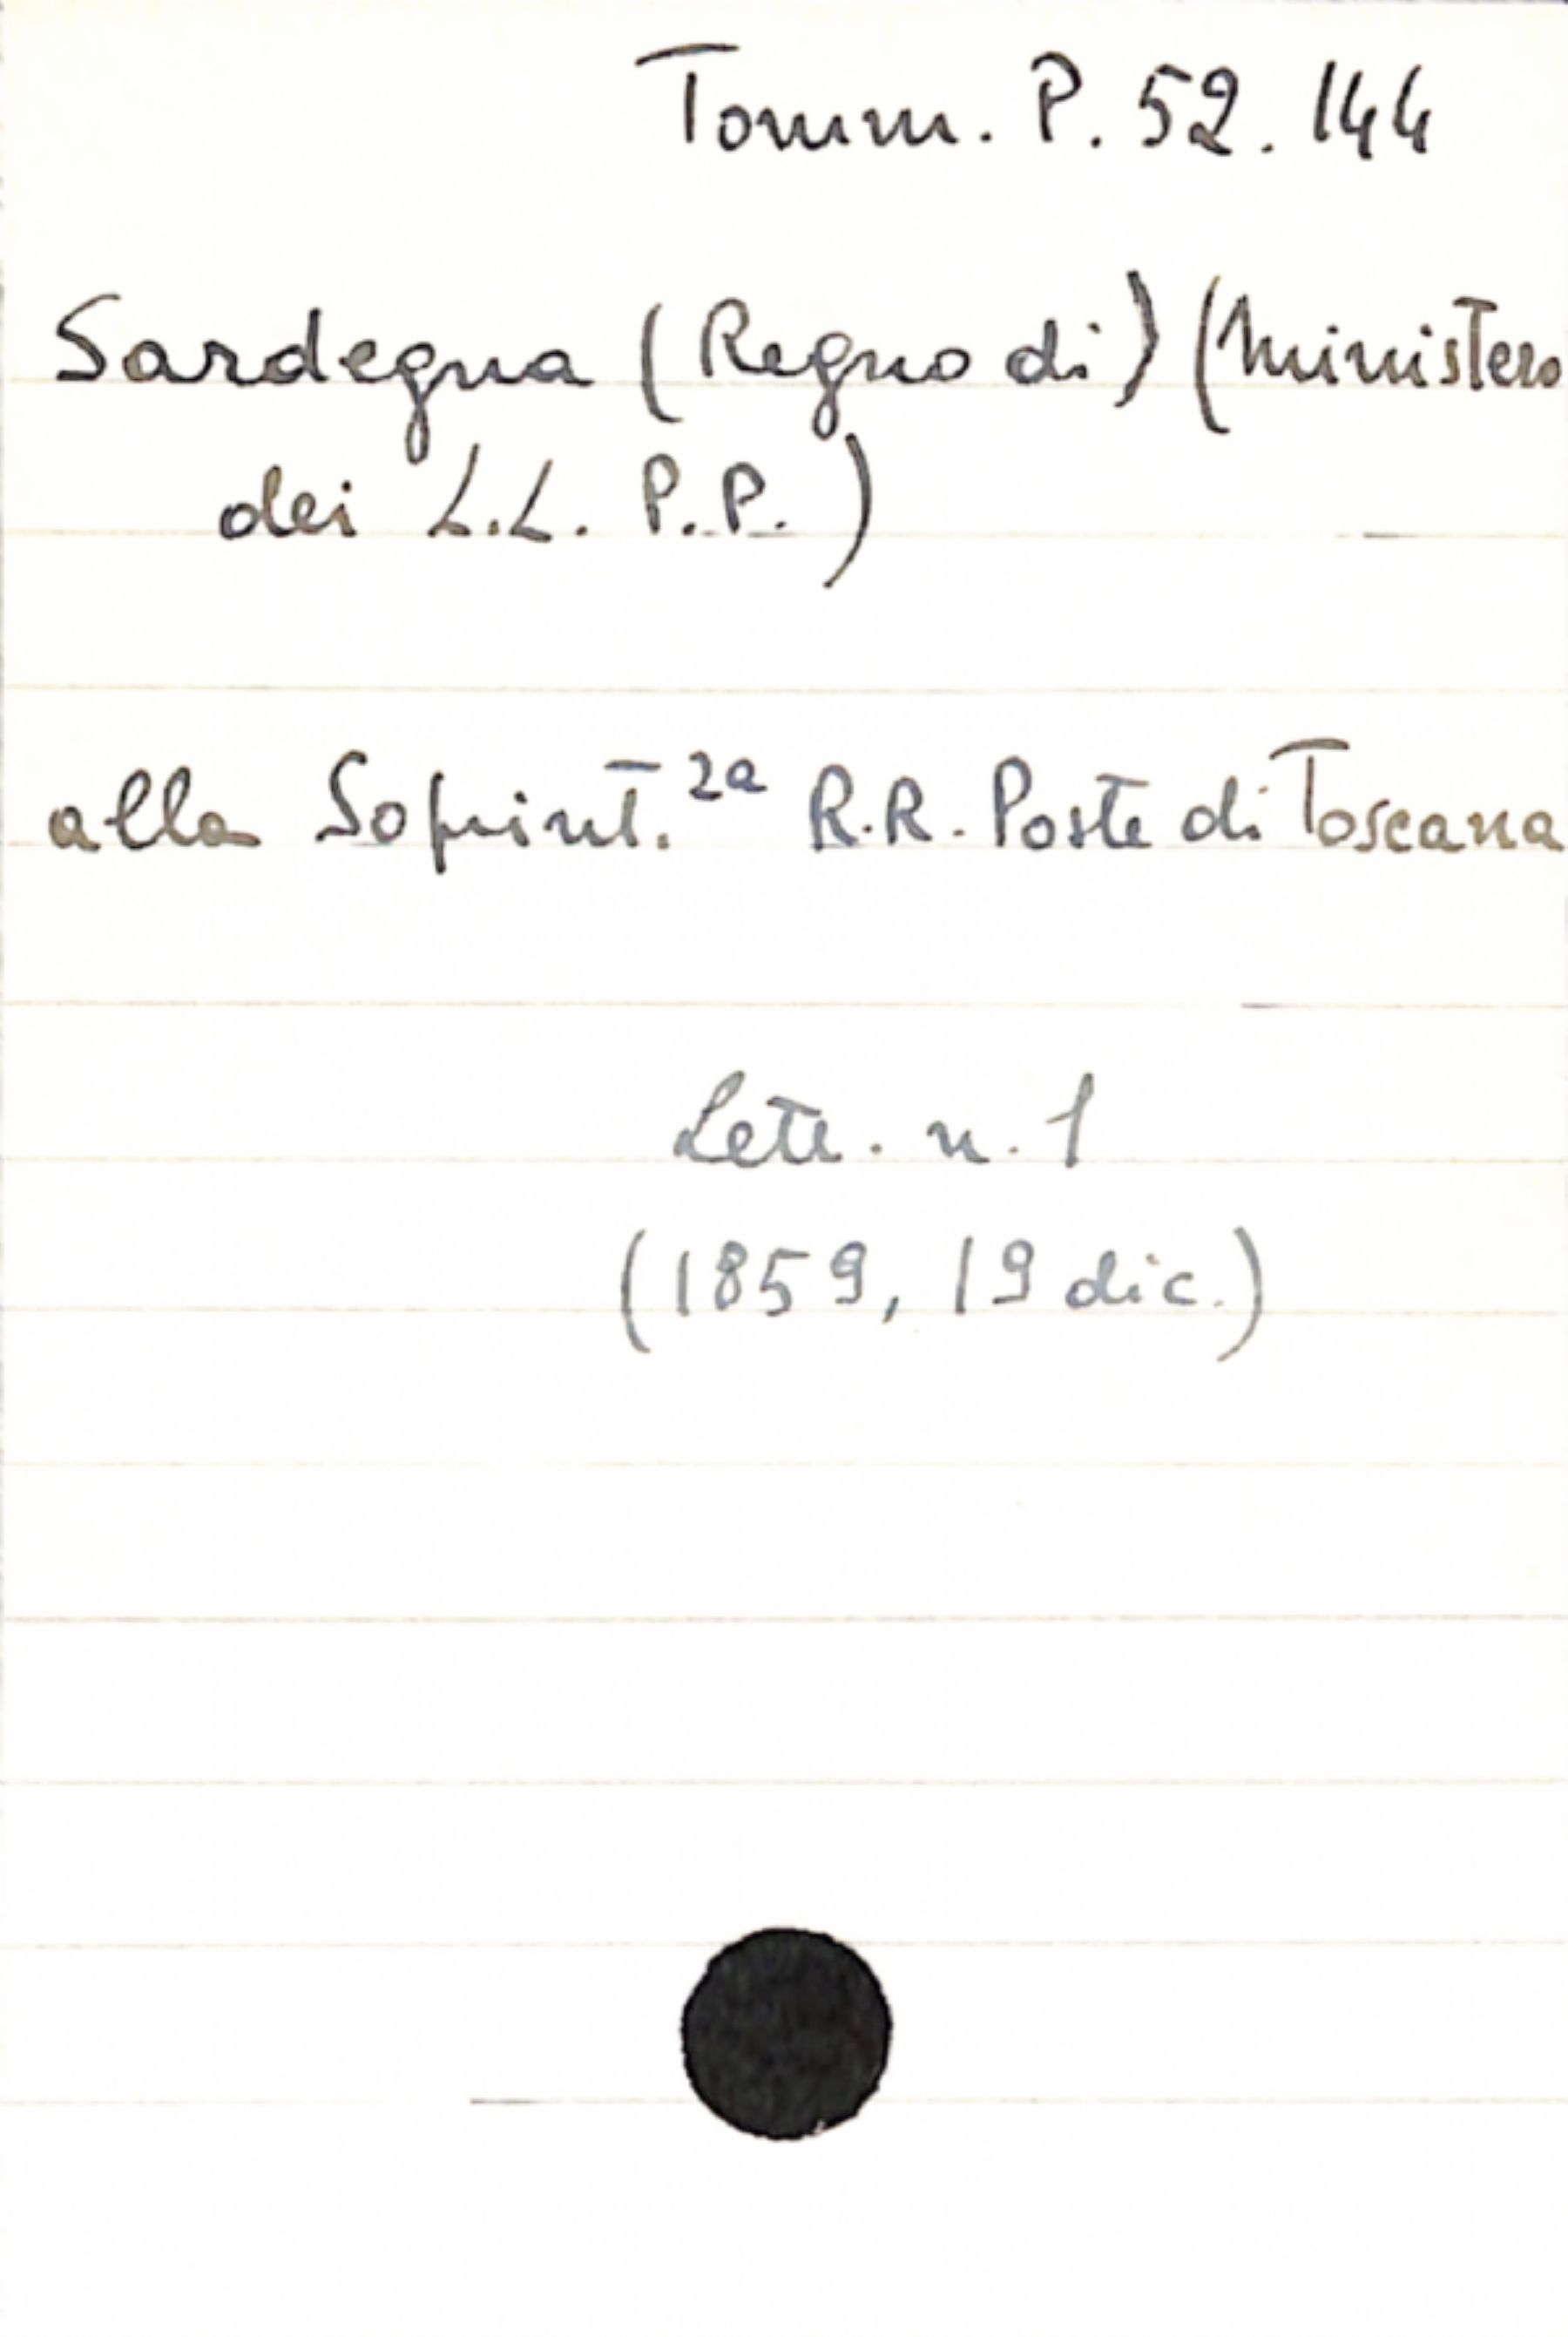 Tomm. P. 52. 144
Sardegna (Regno di) (Ministero
dei L.L. P.P.)
alla Soprint.za R.R. Poste di Toscana
Lett. n. 1
(1859, 19 dic.)